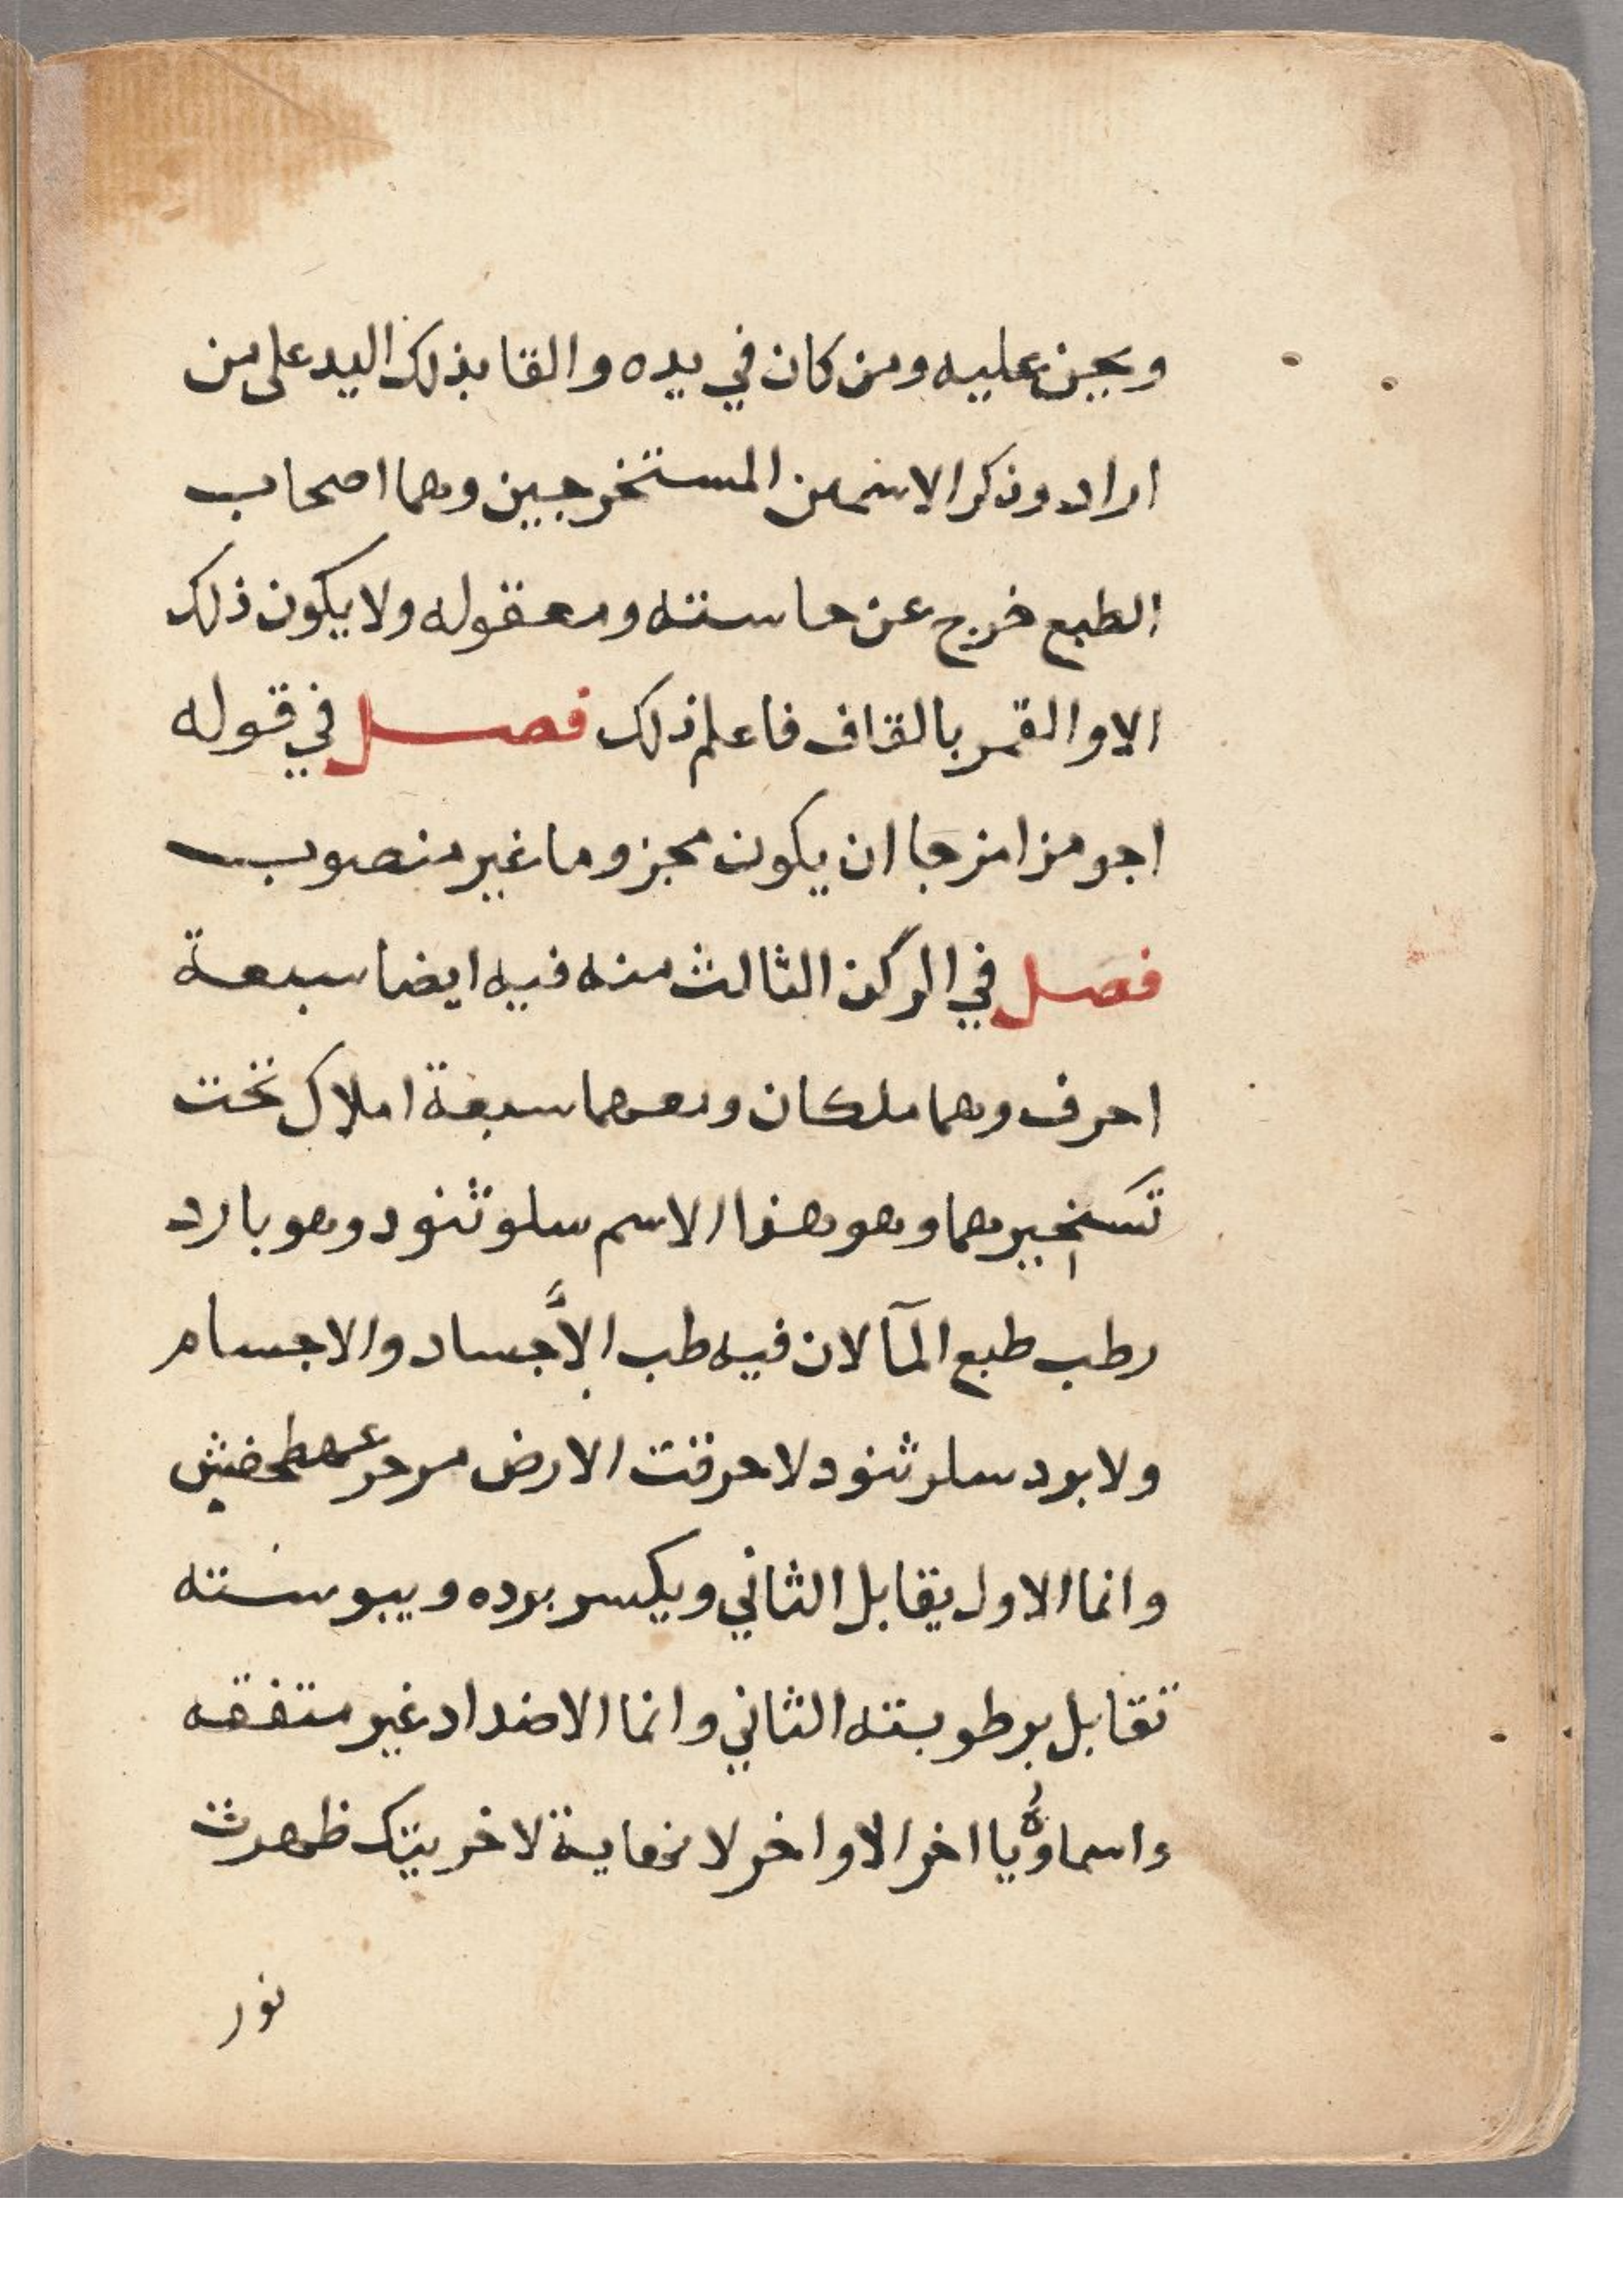 ويجن عليه ومن كان في يده والقا بذلك اليد على من
اراد وذكر الاسمين المستخرجين وهما اصحاب
الطبع خرج عن حاسته ومعقوله ولا يكون ذلك
الا والقمر بالقاف فاعلم ذلك فصل في قوله
اجو مزامزجا ان يكون مجزوما غير منصوب
فصل في الركن الثالث منه فيه ايضا سبعة
احرف وهما ملكان ومعهما سبعة املاك تحت
تسخيرهما وهو هذا الاسم سلوثنود وهو بارد
رطب طبع المآ لان فيه طب الأجساد والاجسام
ولا برد سلرثنود لاحرقت الارض من حر عهطحفيش
وانما الاول يقابل الثاني ويكسر برده ويبوسته
تقابل برطوبته الثاني وانما الاضداد غير متفقه
واسماؤه يا اخر الاواخر لا نهاية لاخريتك ظهرت
نور